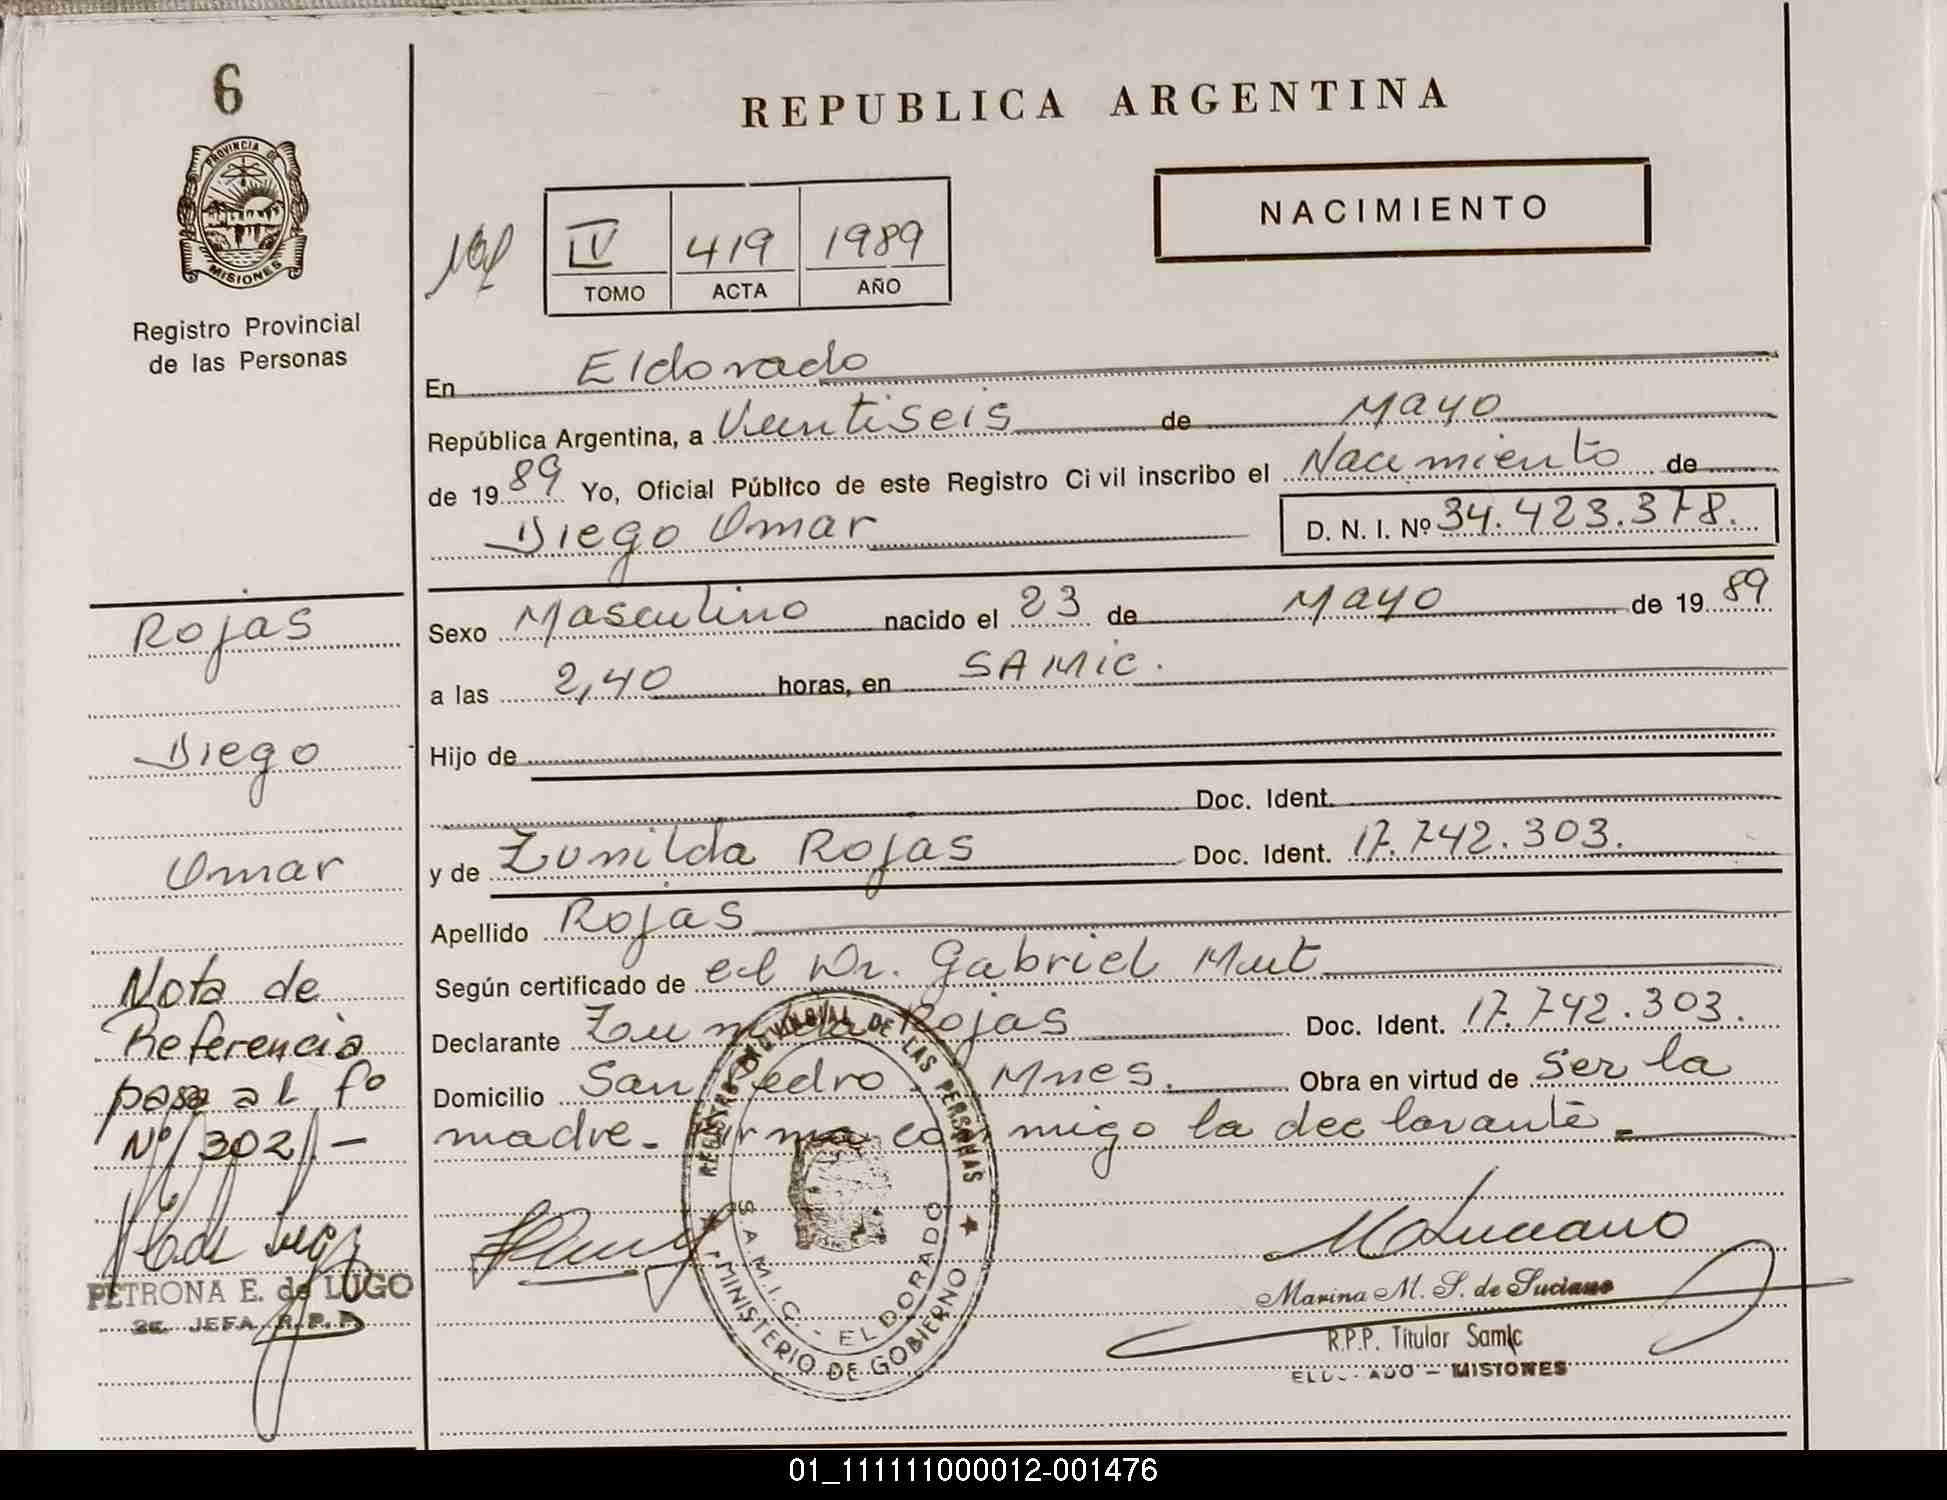 6
PROVINCIA DE
MISIONES
Registro Provincial
de las Personas
REPUBLICA ARGENTINA
NACIMIENTO
IV 419 1989
TOMO ACTA AÑO
En Eldorado
República Argentina, a Veintiseis de Mayo
de 1989 Yo, Oficial Público de este Registro Civil inscribo el Nacimiento de
Diego Omar D. N. I. Nº 34.423.378.
Sexo Masculino nacido el 23 de Mayo de 1989
a las 2,40 horas, en SAMIC.
Hijo de
Doc. Ident.
y de Zunilda Rojas Doc. Ident. 17.742.303.
Apellido Rojas
Según certificado de el Dr. Gabriel Mut
Declarante Zunilda Rojas Doc. Ident. 17.742.303.
Domicilio San Pedro, Mnes. Obra en virtud de ser la
madre. Firma conmigo la declarante.
Rojas
Diego
Omar
Nota de
Referencia
pasa al fº
Nº/302/.-
PETRONA E. de LUGO
JEFA R.P.P.
REGISTRO PROVINCIAL DE LAS PERSONAS
S.A.M.I.C. - ELDORADO
MINISTERIO DE GOBIERNO
Marina M. S. de Luciano
R.P.P. Titular Samic
ELDORADO - MISIONES
01_111111000012-001476